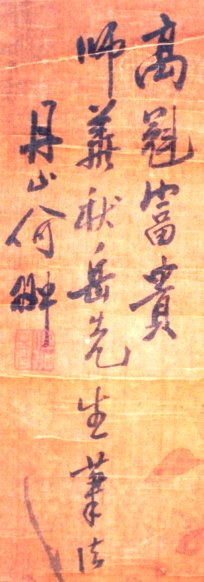 高冠富貴
師華秋岳先生筆法
丹山何翀